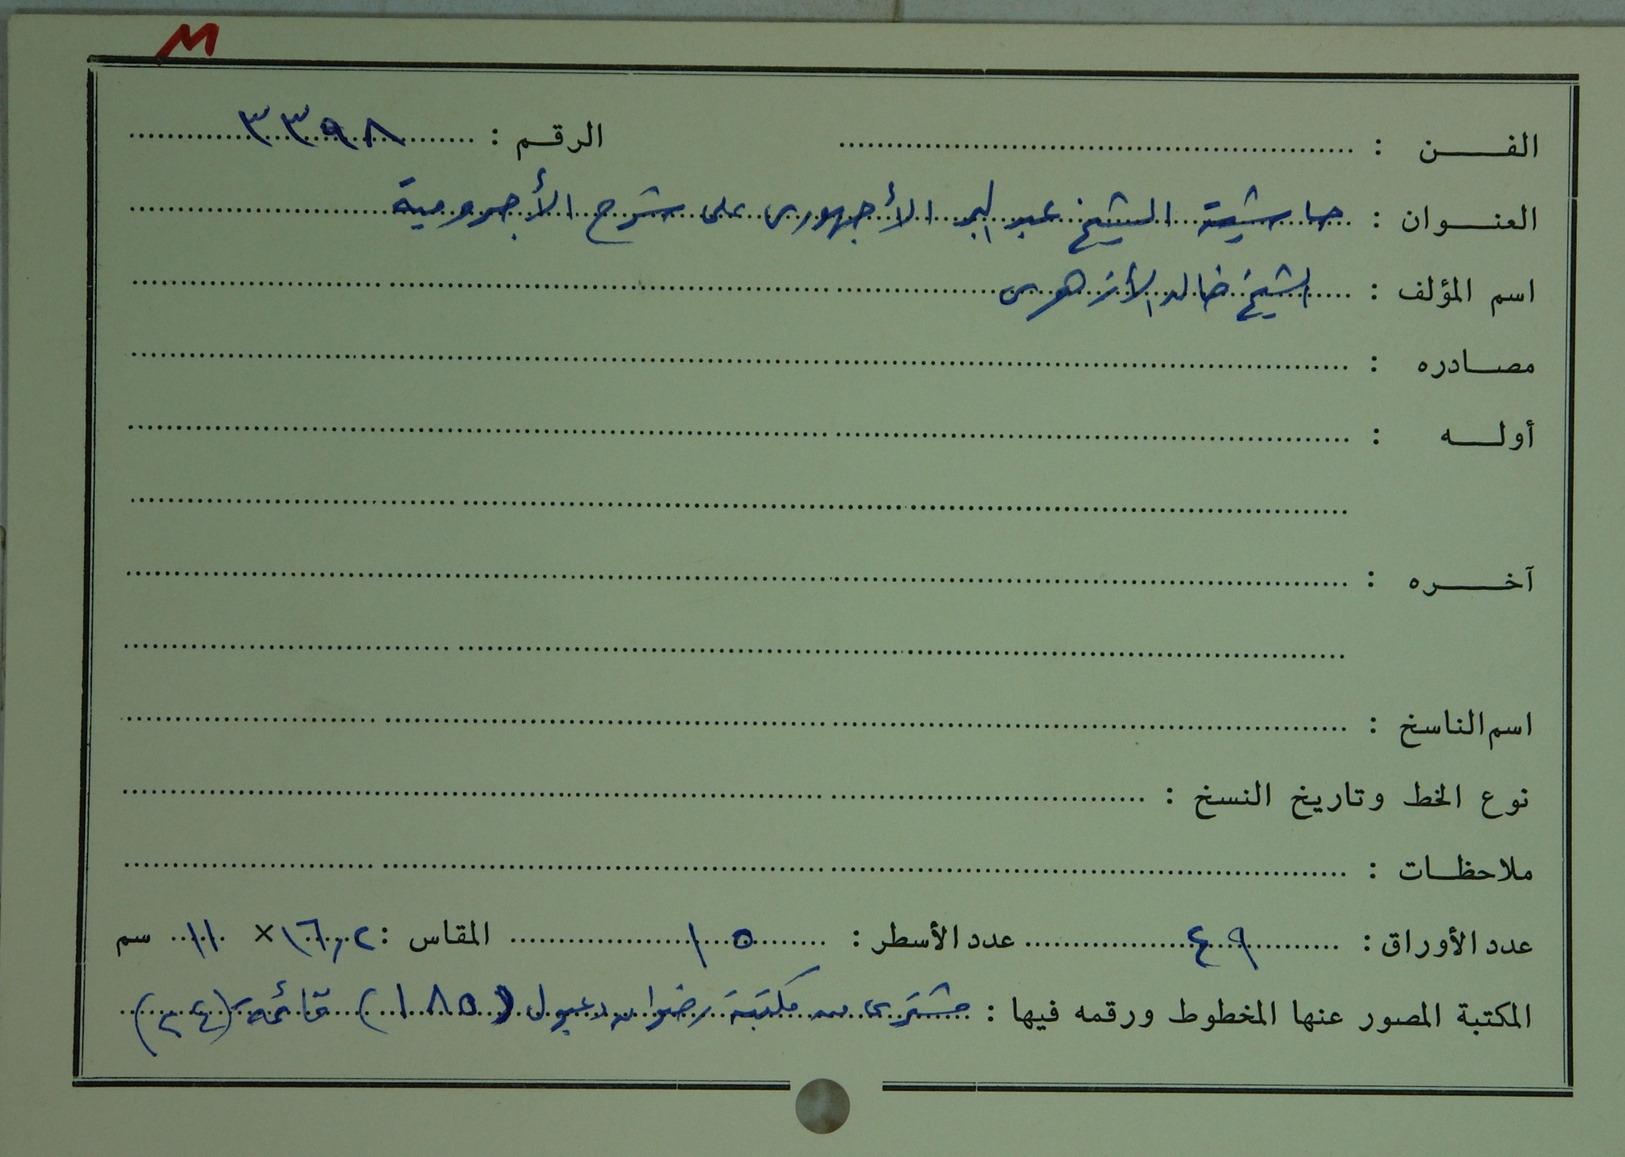 M
الفن : الرقم : ٣٣٩٨
العنوان : حاشية الشيخ عبد البر الأجهورى على شرح الأجرومية
اسم المؤلف : الشيخ خالد الأزهرى
مصادره :
أوله :
آخره :
اسم الناسخ :
نوع الخط وتاريخ النسخ :
ملاحظات :
عدد الأوراق : ٤٩ عدد الأسطر : ١٥ المقاس : ١٦,٢ × ١١ سم
المكتبة المصور عنها المخطوط ورقمه فيها : مشترى من مكتبة رضوان دعبول (١٨٥) قائمة (٢٤)